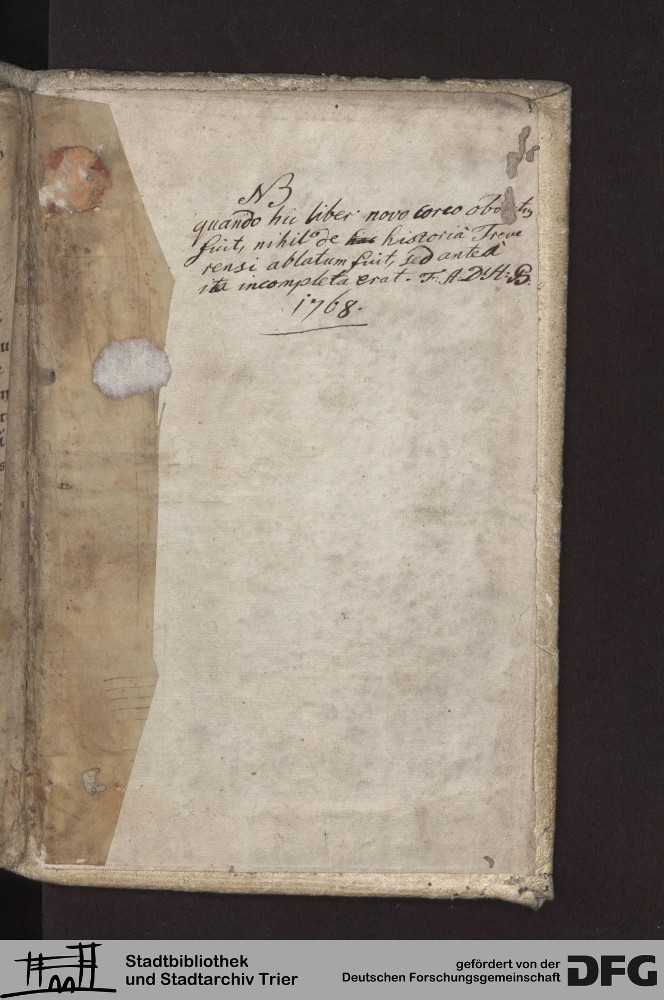 NB
quando hic liber novo coreo
fuit, nihil de historiâ Treve
rensi ablatum fuit, sed anteà
ita incompleta erat. F. A. D. H. B.
1768.
Stadtbibliothek
und Stadtarchiv Trier
gefördert von der
Deutschen Forschungsgemeinschaft
DFG